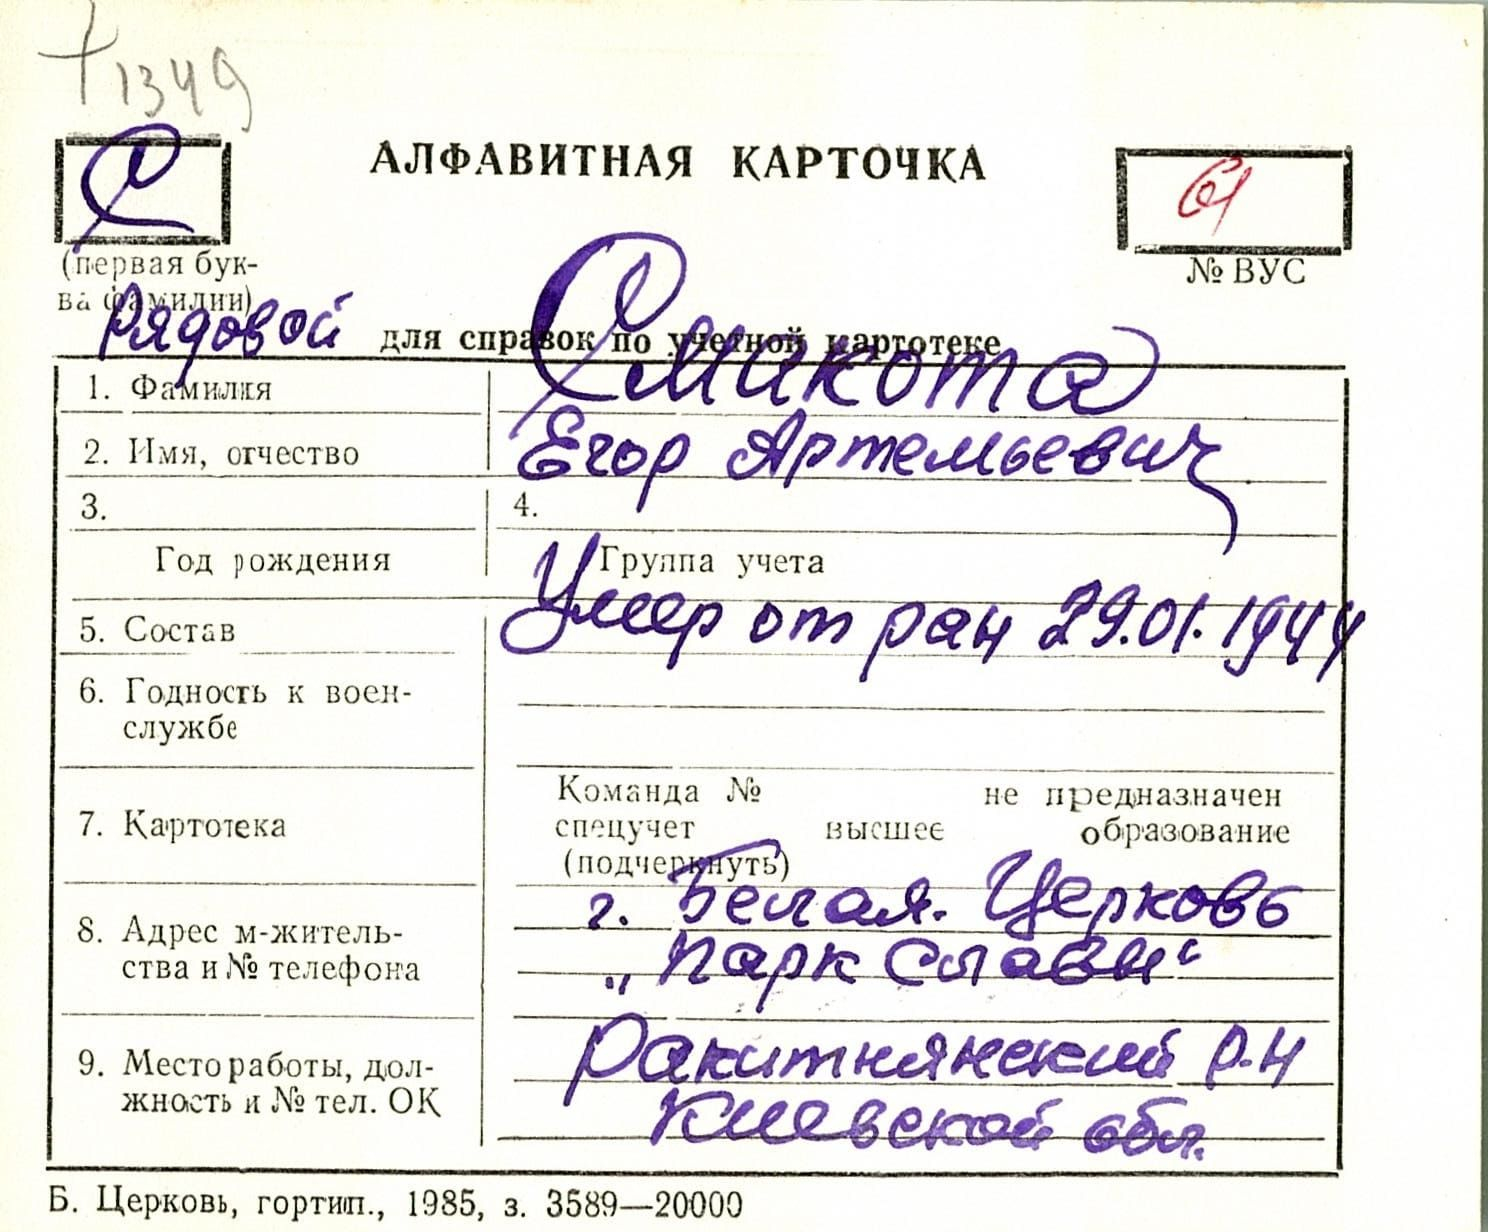 1349
С
АЛФАВИТНАЯ КАРТОЧКА
61
(первая бук-
ва фамилии)
№ ВУС
Рядовой
для справок по учетной картотеке
1. Фамилия
Смикота
2. Имя, отчество
Егор Артемьевич
3.
4.
Год рождения
Группа учета
5. Состав
Умер от ран 29.01.1944
6. Годность к воен-
службе
7. Картотека
Команда № не предназначен
спецучет высшее образование
(подчеркнуть)
8. Адрес м-житель-
ства и № телефона
г. Белая. Церковь
„Парк Славы“
9. Место работы, дол-
жность и № тел. ОК
Ракитнянский р-н
Киевской обл.
Б. Церковь, гортип., 1985, з. 3589—20000